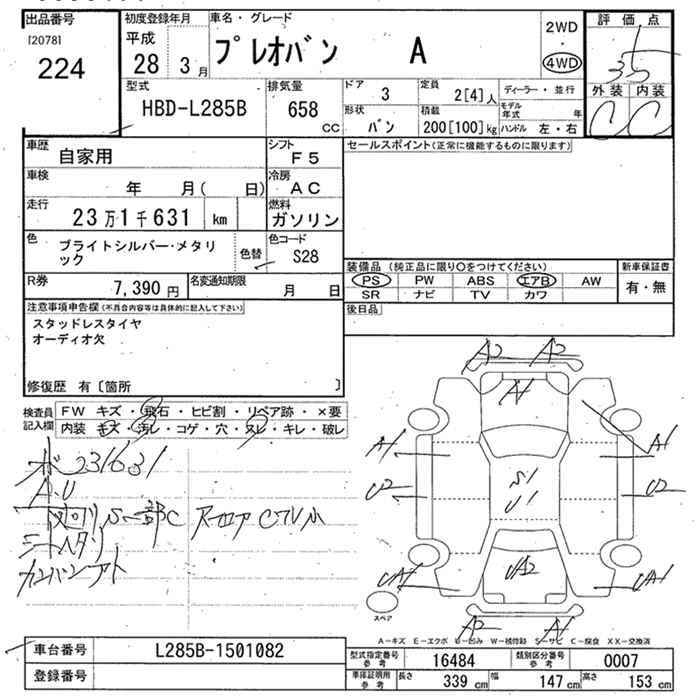 出品番号
[2078]
224
初度登録年月
平成
28 3月
車名・グレード
プレオバン A
2WD
・
4WD
評価点
3.5
外装 内装
C C
型式
HBD-L285B
排気量
658
cc
ドア
3
定員
2[4]人
ディーラー・並行
形状
バン
積載
200[100]kg
モデル年式 年
ハンドル 左・右
車歴
自家用
シフト
F5
車検
年 月( 日)
冷房
AC
走行
23万1千631 km
燃料
ガソリン
色
ブライトシルバー・メタリ
ック
色替
色コード
S28
R券
7,390 円
名変通知期限
月 日
セールスポイント(正常に機能するものに限ります)
装備品 (純正品に限り〇をつけてください)
PS PW ABS エアB AW
SR ナビ TV カワ
新車保証書
有・無
後日品
注意事項申告欄(不具合内容等は具体的に記入して下さい)
スタッドレスタイヤ
オーディオ欠
修復歴 有〔箇所 〕
検査員
記入欄
FW キズ・飛石・ヒビ割・リペア跡・×要
内装 キズ・汚レ・コゲ・穴・スレ・キレ・破レ
231631
A.U
A2 A2
A1
A1 A1
U2 U2
S1
U1
UA2
UA1 UA1
A2 A1
スペア
A-キズ E-エクボ U-凹み W-補修跡 S-サビ C-腐食 XX-交換済
車台番号
L285B-1501082
登録番号
型式指定番号
参考
16484
類別区分番号
参考
0007
車庫証明用
参考
長さ
339 cm
幅
147 cm
高さ
153 cm